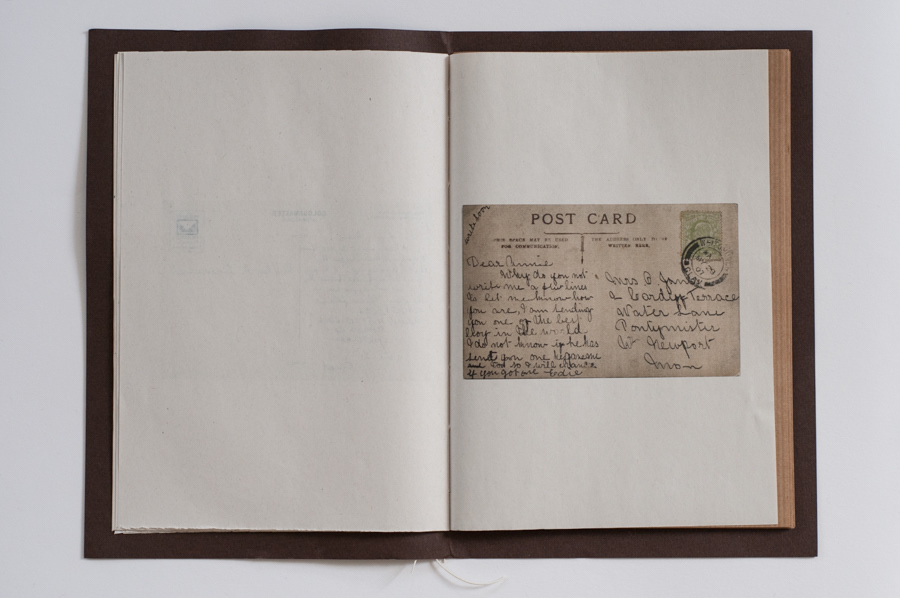 write soon
POST CARD
THIS SPACE MAY BE USED
FOR COMMUNICATION.
THE ADDRESS ONLY TO BE
WRITTEN HERE.
Dear Annie
Why do you not
write me a few lines
to let me know how
you are, I am sending
you one of the best
boy in the world
I do not know if he has
send you one he
so I will chance
if you got one Edie
Mrs C
2 Terrace
Water Lane
Pontymister
Nr Newport
Mon